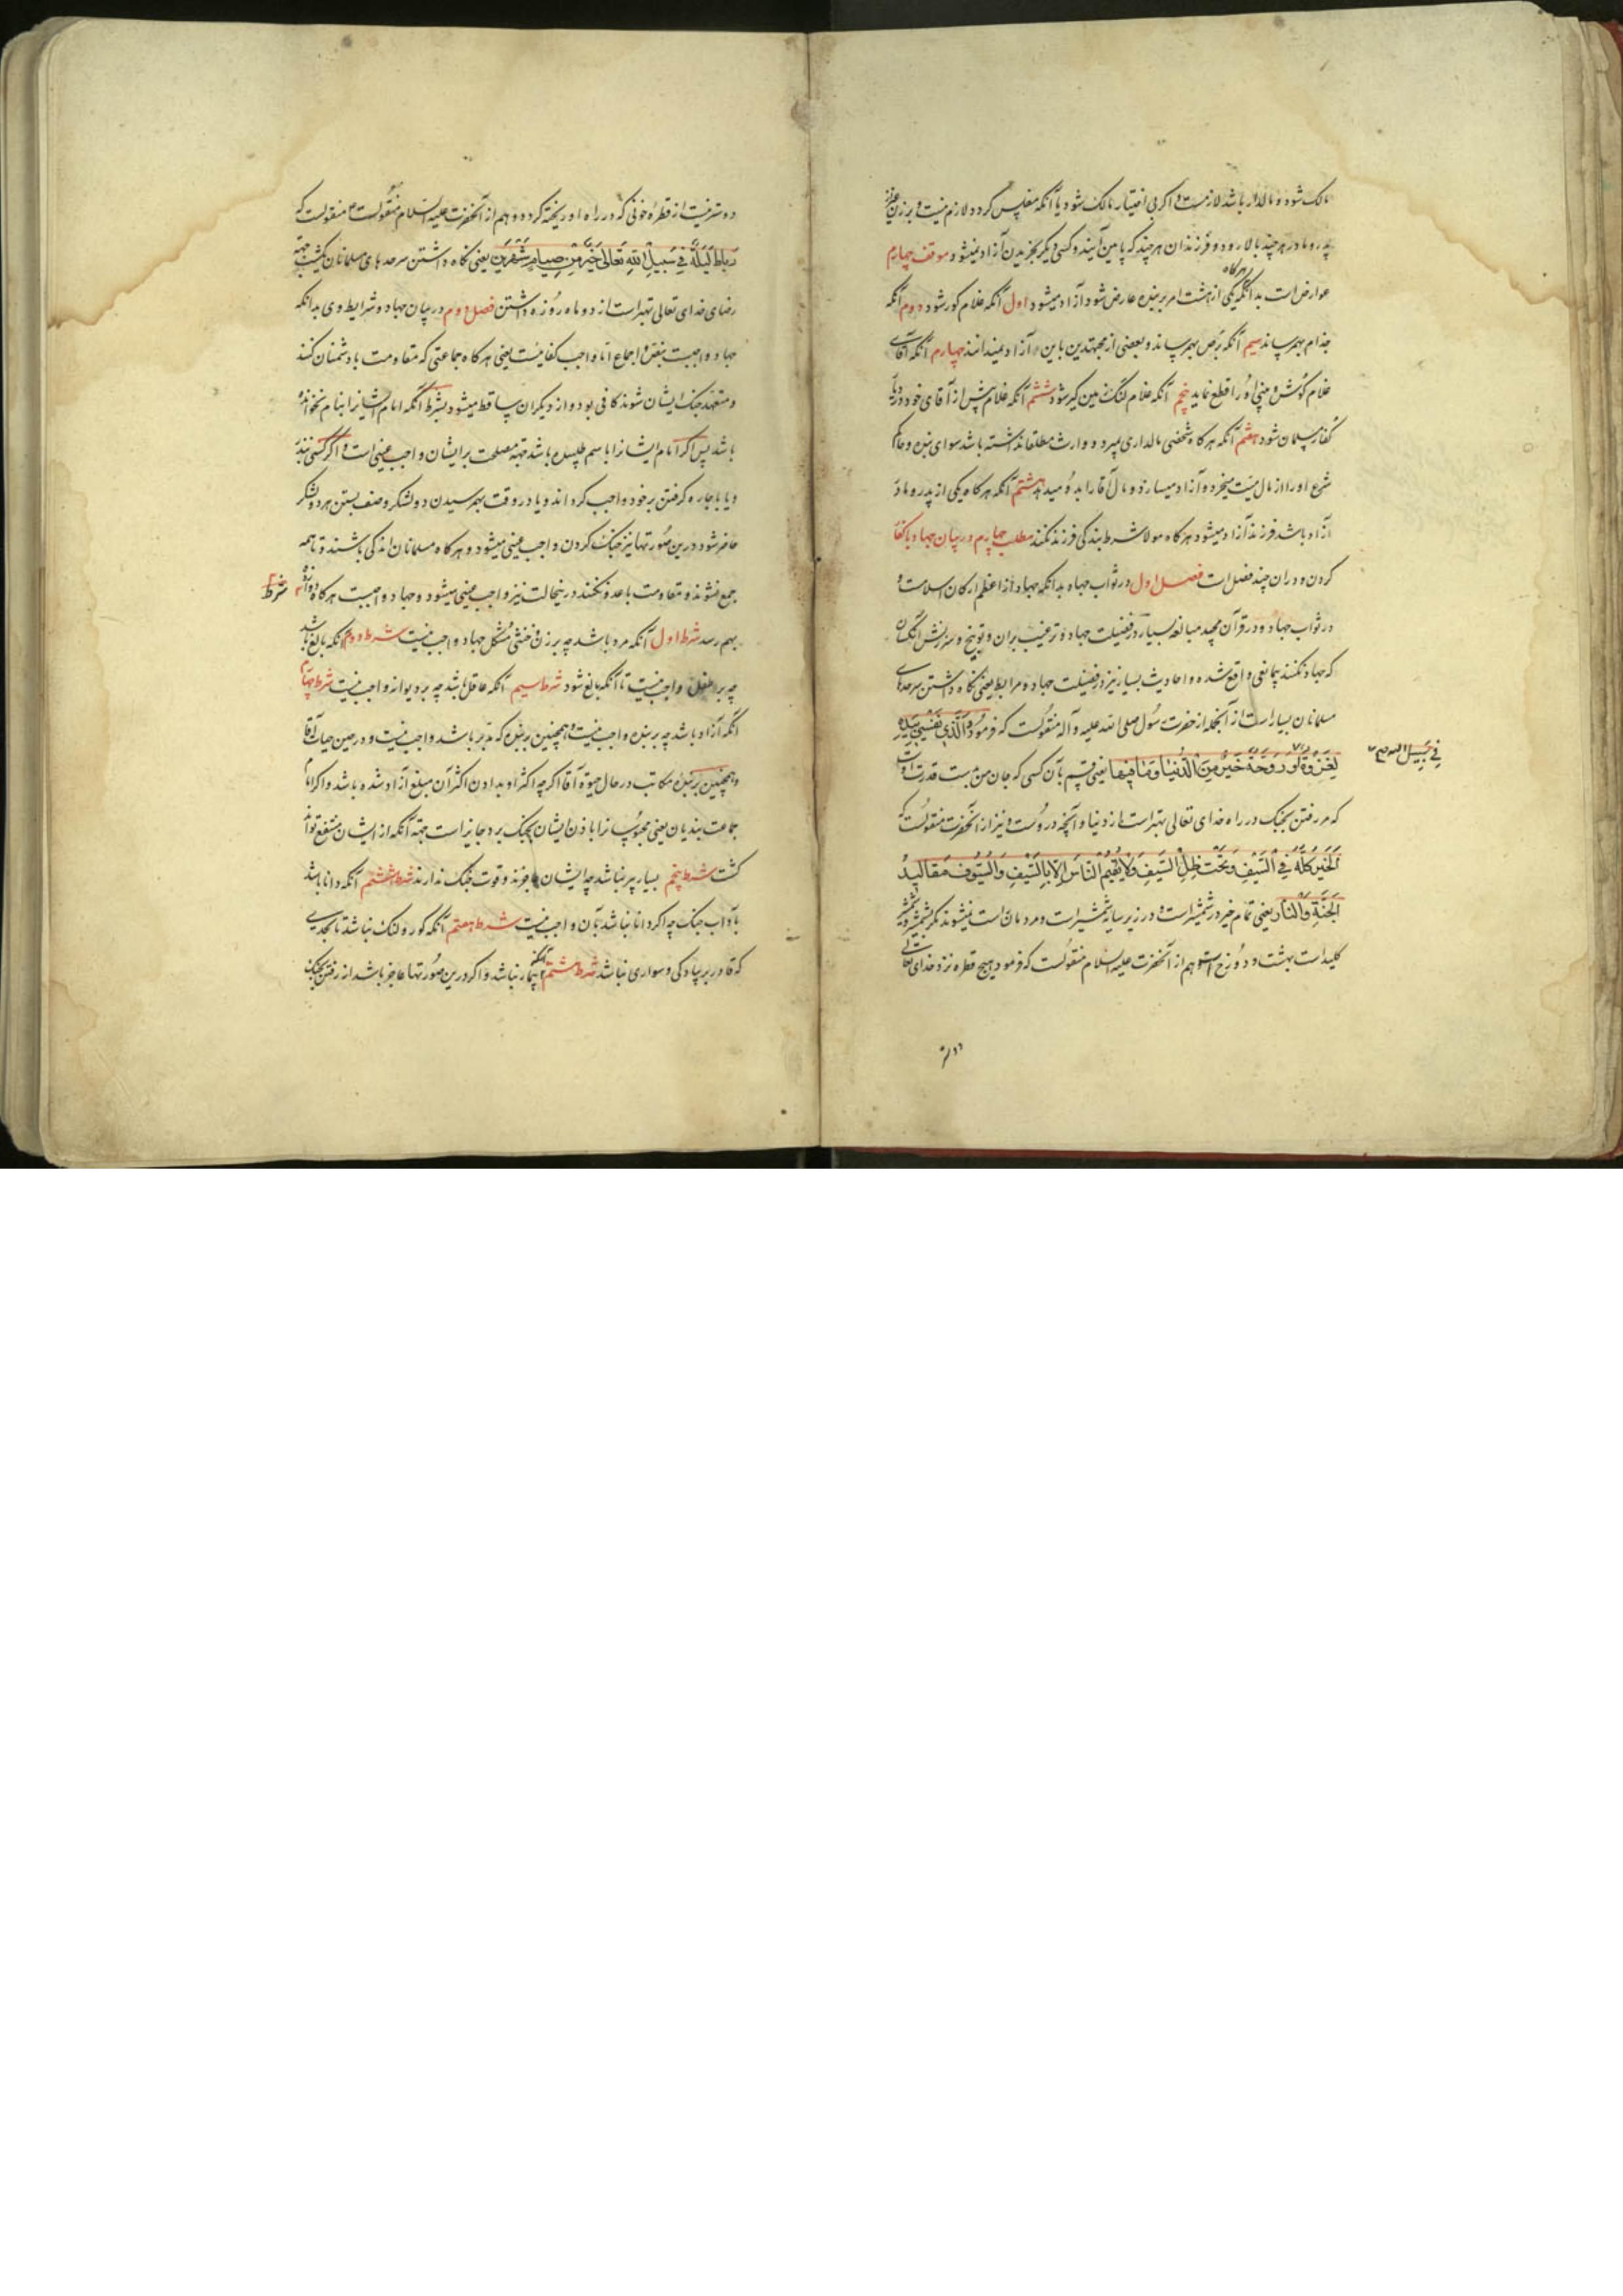 مالک شود و مالدار باشد لازمست و اکر بی اختیار مالک شود یا آنکه مفلس کردد لازم نیست و برزن غیر
پدر و مادر هر چند بالا رود و فرزندان هر چند که پایین آیند و کسی دیکر بخریدن آزاد نمیشود موقف چهارم
عوارض است بدانکه هرکاه یکی از هشت امر بر بنده عارض شود آزاد میشود اول آنکه غلام کور شود دوم آنکه
جذام بهم رساند سیم آنکه برص بهم رساند و بعضی از مجتهدین باین آزاد نمیدانند چهارم آنکه آقای
غلام کوش و بینی او را قطع نماید پنجم آنکه غلام لنک و زمین کیر شود ششم آنکه غلام پیش از آقای خود در دیار
کفار مسلمان شود هفتم آنکه هرکاه شخصی مالداری بمیرد و وارث مطلقا نداشته باشد سوای بنده و حاکم
شرع او را از مال میت میخرد و آزاد میسازد و مال آقا را بدو میدهد هشتم آنکه هرکاه یکی از پدر و مادر
آزاد باشد فرزند آزاد میشود هرکاه مولا شرط بندکی فرزند نکند مطلب چهارم در بیان جهاد با کفار
کردن و در ان چند فصل است فصل اول در ثواب جهاد بدانکه جهاد از اعظم ارکان اسلامست و
در ثواب جهاد و در قرآن مجید مبالغه بسیار در فضیلت جهاد و ترغیب بران و توبیخ و سرزنش آنکسان
که جهاد نکنند بی مانعی واقع شده و احادیث بسیار نیز در فضیلت جهاد و مرابطه یعنی نکاه داشتن سرحدهای
مسلمانان بسیار است از آنجمله از حضرت رسول صلی الله علیه و آله منقولست که فرموده وَالَّذی نَفْسی بِیَدِهِ
لَغَزْوَةٌ اَو رَوحَةٌ خَیْرٌ مِنَ الدُنْیا وَمَا فیها یعنی قسم بآن کسی که جان من بدست قدرت اوست
فی سبیل الله صح
که هر رفتن بجنک در راه خدای تعالی بهتر است از دنیا و آنچه در وست و نیز از آنحضرت منقولست که
اَلخَیْرُ کُلُّهُ فِی السَّیْفِ وَتَحْتَ ظِلِّ السَّیْفِ وَلا یُقیمُ النّاسَ اِلّا بِالسَّیْفِ وَالسُّیُوفُ مَقالیدُ
الجَنَّةِ وَالنّارِ یعنی تمام خیر در شمشیر است و در زیر سایه شمشیر است و مردمان راست نمیشوند مکر بشمشیر و شمشیر
کلید است بهشت و دوزخ است و هم از آنحضرت علیه السلام منقولست که فرمود هیچ قطره نزد خدای تعالی
دوستر نیست از قطرهٔ خونی که در راه او ریخته کردد و هم از آنحضرت علیه السلام منقولست که
رِباطُ لَیْلَةٍ فی سَبیلِ اللهِ تَعالی خَیْرٌ مِنْ صِیامِ شَهْرَیْنِ یعنی نکاه داشتن سرحدهای مسلمانان یکشب جهة
رضای خدای تعالی بهتر است از دو ماه روزه داشتن فصل دوم در بیان جهاد و شرایط وی بدانکه
جهاد واجبست بنص و اجماع اما واجب کفائیست یعنی هرکاه جماعتی که مقاومت با دشمنان کنند
و متعهد جنک ایشان شوند کافی بود و از دیکران ساقط میشود بشرط آنکه امام ایشانرا بنام نخوانده
باشد پس اکر امام ایشانرا باسم طلبیده باشد جهة مصلحت بر ایشان واجب عینی است و اکر کسی بنذر
و یا باجاره کرفتن بر خود واجب کرداند و یا در وقت بهم رسیدن دو لشکر و صف بستن هر دو لشکر
حاضر شود درین صورتها نیز جنک کردن واجب عینی میشود و هرکاه مسلمانان اندکی باشند و تا همه
جمع نشوند مقاومت با عدو نکنند درینحالت نیز واجب عینی میشود و جهاد واجبست هرکاه دوازده شرط
بهم رسد شرط اول آنکه مرد باشد چه بر زن و خنثی مشکل جهاد واجب نیست شرط دوم آنکه بالغ باشد
چه بر طفل واجب نیست تا آنکه بالغ شود شرط سیم آنکه عاقل باشد چه بر دیوانه واجب نیست شرط چهارم
آنکه آزاد باشد چه بر بنده واجب نیست و همچنین بر بنده که مدبر باشد واجب نیست و در حین حیات آقا
و همچنین بر بنده مکاتب در حال حیوة آقا اکرچه اکثر او بدادن اکثر آن مبلغ آزاد شده باشد و اکر امام
جماعت بندیان یعنی محبوسانرا باذن ایشان بجنک برد جایز است جهة آنکه از ایشان منتفع تواند
کشت شرط پنجم بسیار پیر نباشد چه ایشان عاجزند و قوت جنک ندارند شرط ششم آنکه دانا باشد
بآداب جنک چه اکر دانا نباشد بآن واجب نیست شرط هفتم آنکه کور و لنک نباشد تا بحدی
که قادر بر پیادکی و سواری نباشد شرط هشتم آنکه بیمار نباشد و اکر درین صورتها عاجز باشد از رفتن بجنک